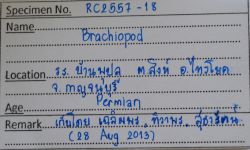 Specimen No. RC2557-18
Name
Brachiopod
Location รร. บ้านพุปลู ต.สิงห์ อ.ไทรโยค
จ.กาญจนบุรี
Age Permian
Remark เก็บโดย เฉลิมพร, ทิวาพร,
(28 Aug 2013)